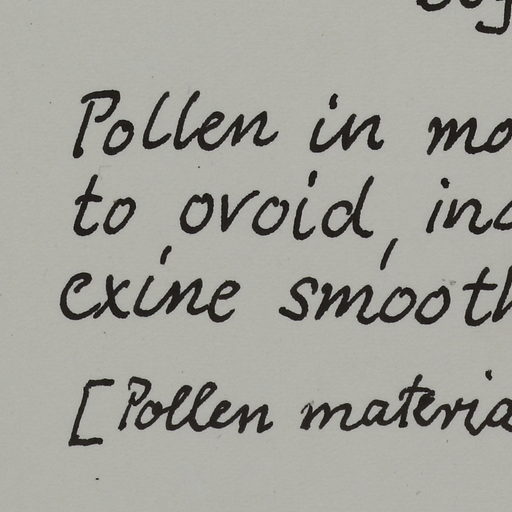 Pollen in mo
to ovoid, ina
exine smooth
[Pollen materia